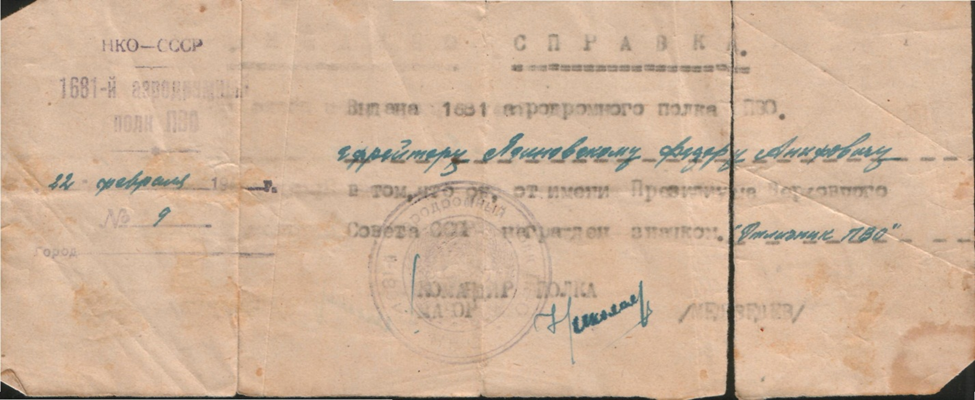 НКО—СССР
1681-й аэродромный
полк ПВО
22 февраля 19 г.
№ 9
Город
СПРАВКА.
Выдана 1681 аэродромного полка ПВО.
ефрейтору Ясиновскому Федеру
в том, что он, от имени Президиума Верховного
Совета СССР награжден значком "Отличник ПВО"
КОМАНДИР ПОЛКА
МАЙОР /МЕДВЕДЕВ/
аэродромный